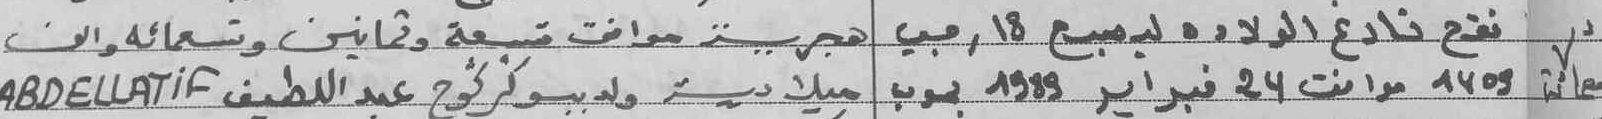 نقح تاريخ الولادة ليصبح 18 رجب هجرية موافق تسعة وثمانين وتسعمائة والف
1409 موافق 24 فبراير 1989 بدون ميلادية ولد ببوكركوح عبد اللطيف ABDELLATIF